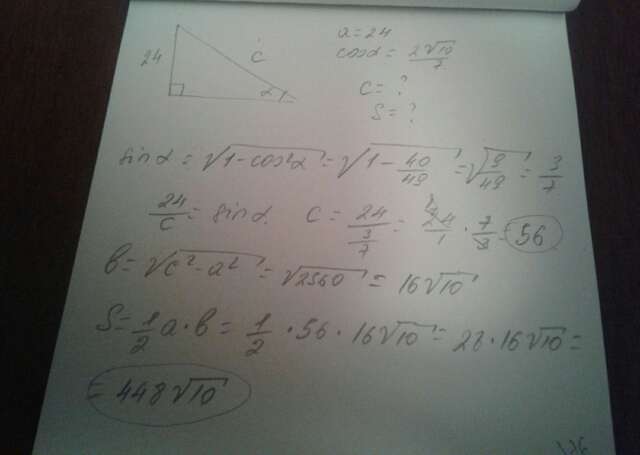 24 c α
a = 24
cosα = 2√10/7
c = ?
S = ?
sinα = √(1-cos²α) = √(1-40/49) = √(9/49) = 3/7
24/c = sinα c = 24/(3/7) = 24/1 · 7/3 = 56
b = √(c²-a²) = √2560 = 16√10
S = 1/2 a·b = 1/2 · 56 · 16√10 = 28·16√10 =
= 448√10